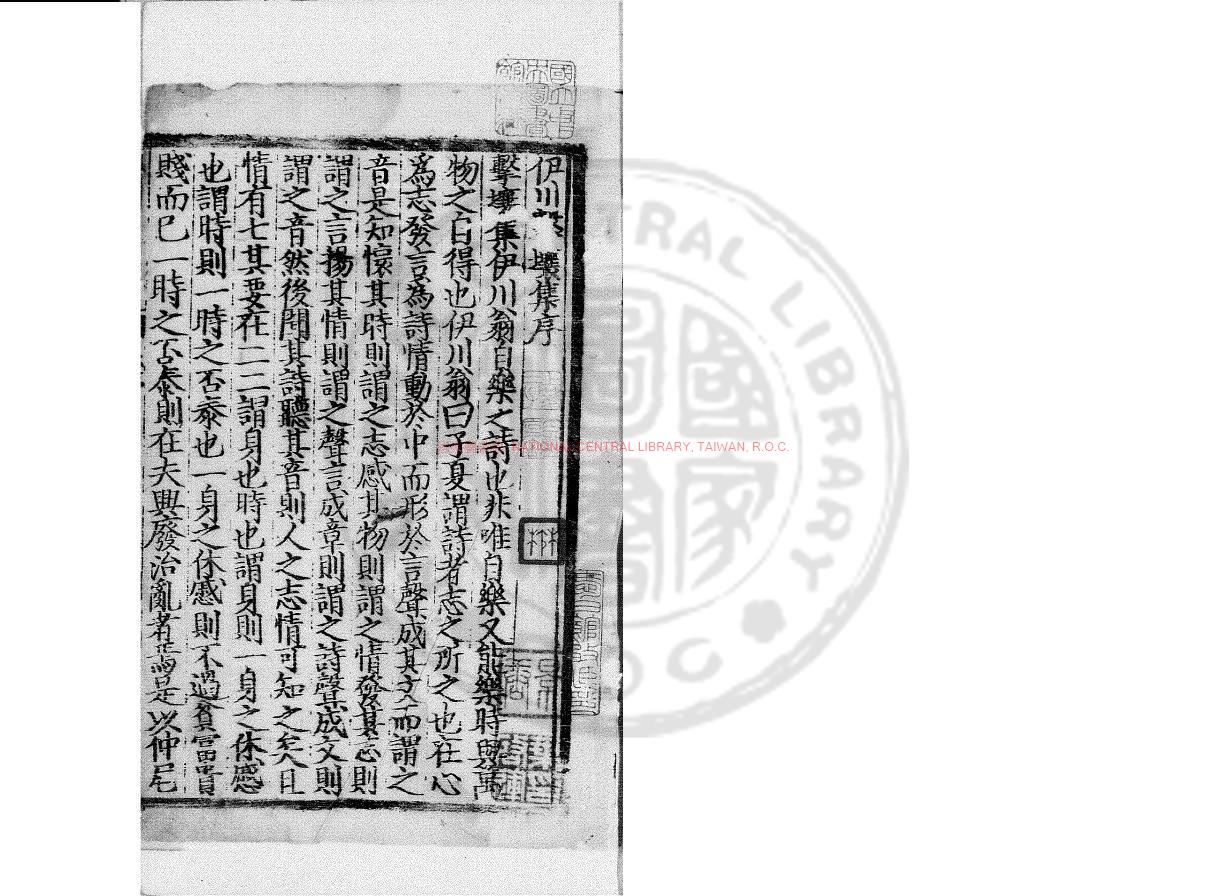 伊川擊壤集序
擊壤集伊川翁自樂之詩也非唯自樂又能樂時與萬
物之自得也伊川翁曰子夏謂詩者志之所之也在心
爲志發言為詩情動於中而形於言聲成其文而謂之
音是知懷其時則謂之志感其物則謂之情發其志則
謂之言揚其情則謂之聲言成章則謂之詩聲成文則
謂之音然後聞其詩聽其音則人之志情可知之矣且
情有七其要在二二謂身也時也謂身則一身之休慼
也謂時則一時之否泰也一身之休慼則不過貧富貴
賤而已一時之否泰則在夫興廢治亂者焉是以仲尼
NATIONAL CENTRAL LIBRARY, TAIWAN, R.O.C.